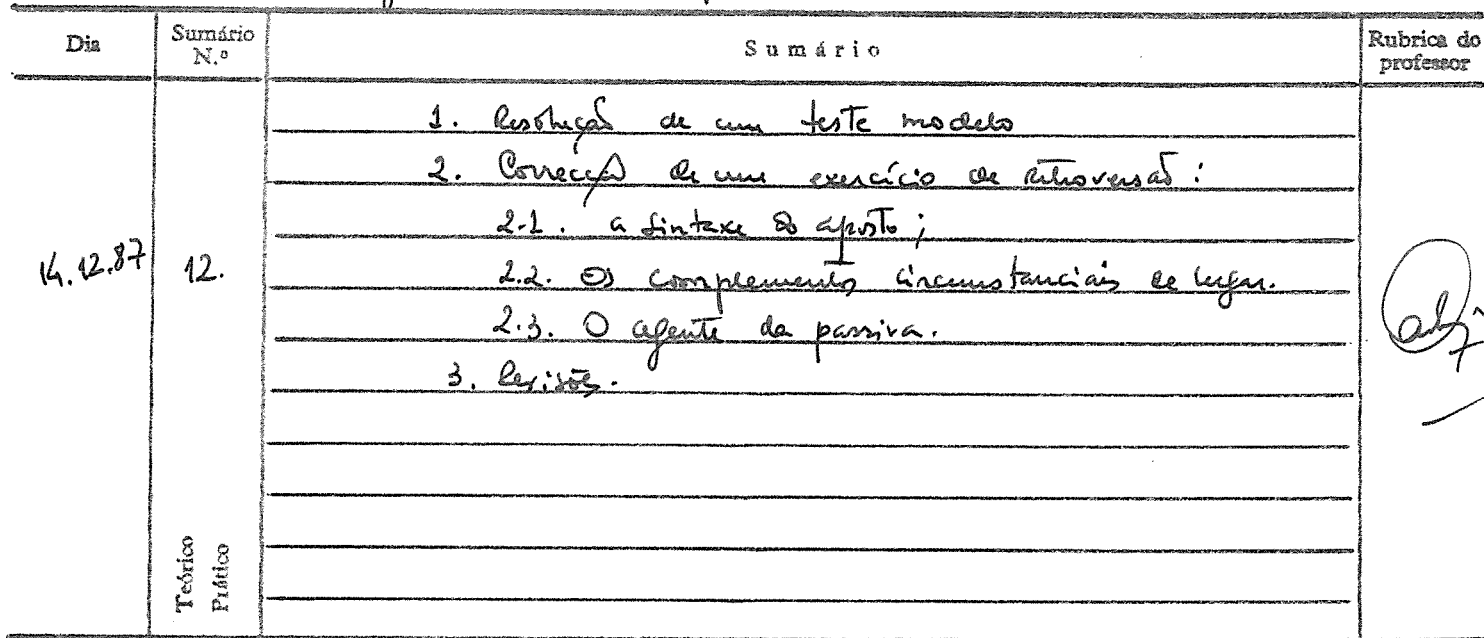 Dia
Sumário N.º
Sumário
Rubrica do professor
14.12.87
12.
1. Resolução de um teste modelo
2. Correcção de um exercício de retroversão:
2.1. a sintaxe do aposto;
2.2. Os complementos circunstanciais de lugar.
2.3. O agente da passiva.
3. Revisões.
Teórico
Prático